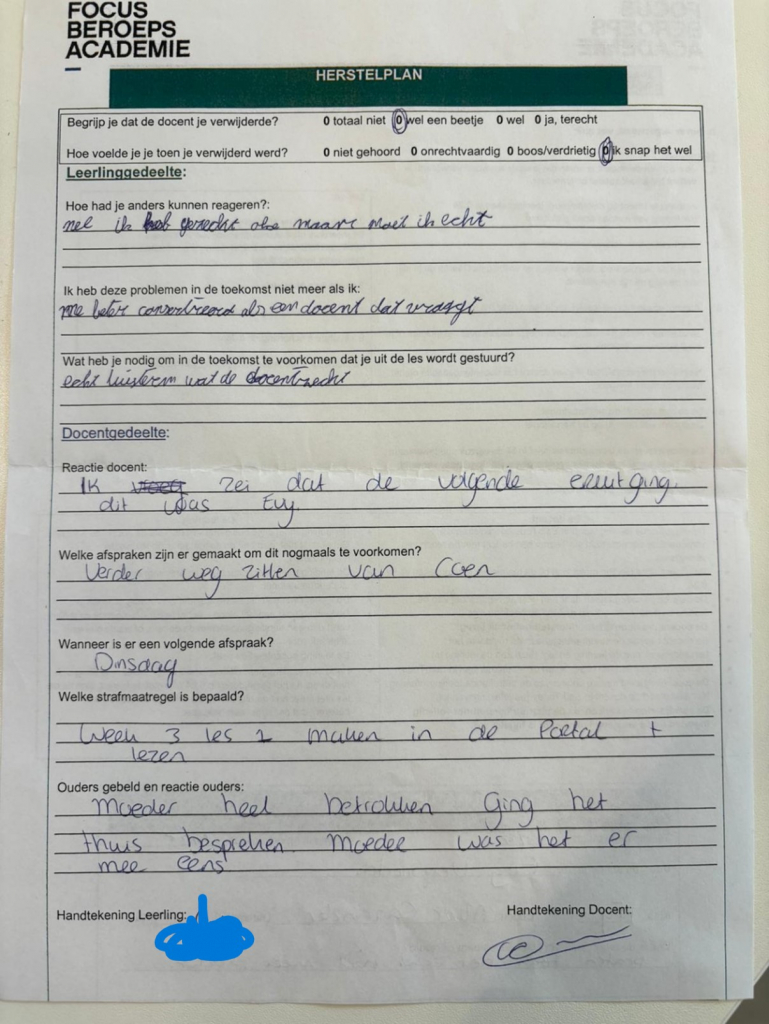 FOCUS
BEROEPS
ACADEMIE
HERSTELPLAN
Begrijp je dat de docent je verwijderde? 0 totaal niet 0 wel een beetje 0 wel 0 ja, terecht
Hoe voelde je je toen je verwijderd werd? 0 niet gehoord 0 onrechtvaardig 0 boos/verdrietig 0 ik snap het wel
Leerlinggedeelte:
Hoe had je anders kunnen reageren?:
nee ik gezecht oke maar moet ik echt
Ik heb deze problemen in de toekomst niet meer als ik:
me beter als een docent dat vraagt
Wat heb je nodig om in de toekomst te voorkomen dat je uit de les wordt gestuurd?
echt luisteren wat de docent zecht
Docentgedeelte:
Reactie docent:
Ik zei dat de volgende eruit ging.
dit was Evy.
Welke afspraken zijn er gemaakt om dit nogmaals te voorkomen?
Verder weg zitten van Coen
Wanneer is er een volgende afspraak?
Dinsdag
Welke strafmaatregel is bepaald?
Week 3 les 1 maken in de Portal +
lezen
Ouders gebeld en reactie ouders:
Moeder heel betrokken Ging het
thuis bespreken. Moeder was het er
mee eens
Handtekening Leerling:
Handtekening Docent: